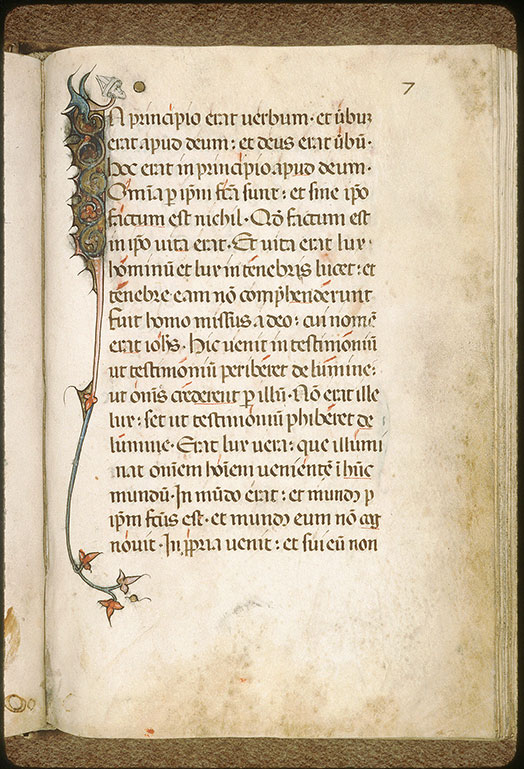 7
In principio erat verbum · et ūbuꝫ
erat apud deum : et deus erat ūbū ·
hoc erat in principio apud deum ·
Om̄ia ꝑ ip̄m fc̄a sunt : et sine ip̄o
factum est nichil · Qð factum est
in ip̄o vita erat · Et vita erat lux ·
hominū et lux in tenebris lucet : et
tenebre eam nō comp̄henderunt
fuit homo missus a deo : cui nomē
erat ioh̄s · Hic venit in testimoniū
ut testimoniū periberet de lumine :
ut om̄s crederent ꝑ illū · Nō erat ille
lux : set ut testimoniū phiberet de
lumine · Erat lux vera : que illumi
nat om̄em hoīem venientē ī hūc
mundū · In mūdo erat : et mundꝯ ꝑ
ip̄m fc̄us est · et mundꝯ eum nō cog
novit · In ꝓpria venit : et sui eū non